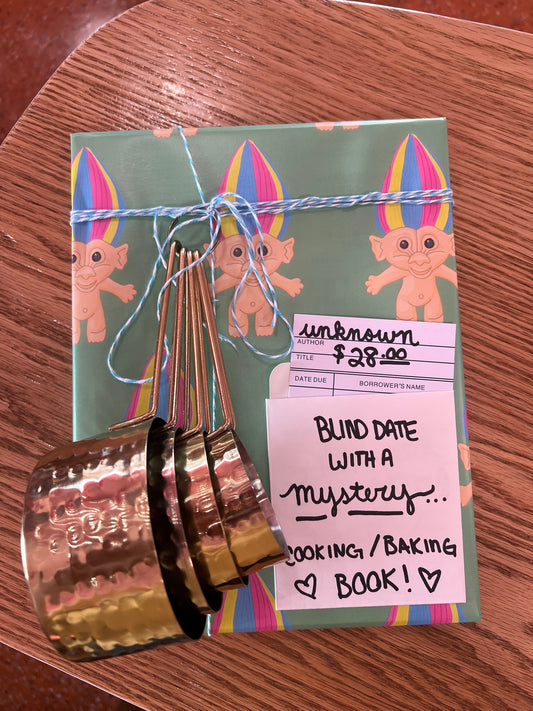 unknown
AUTHOR
$28.00
TITLE
DATE DUE
BORROWER'S NAME
BLIND DATE
WITH A
mystery...
COOKING/BAKING
♡ BOOK! ♡